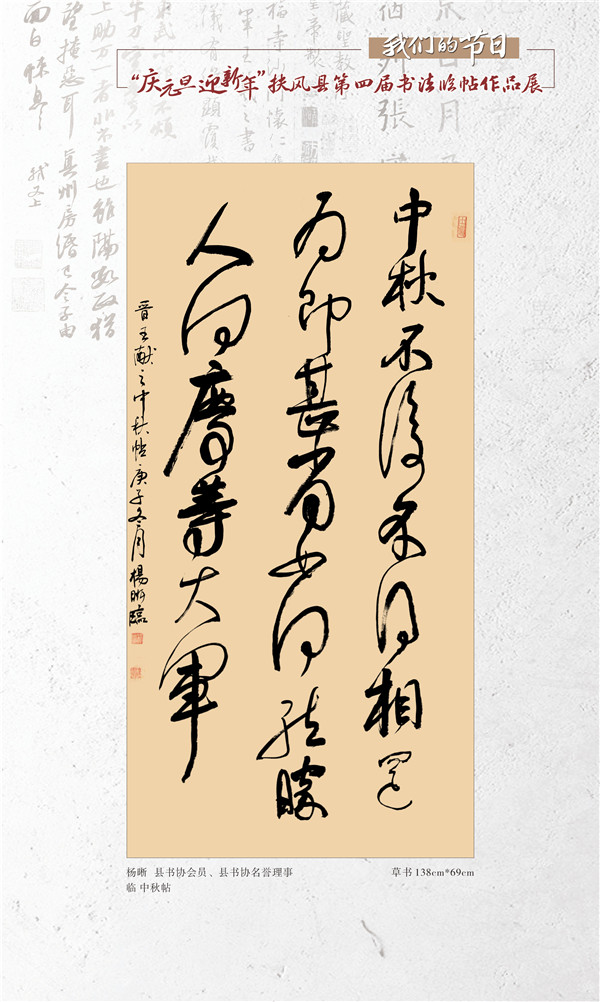 我们的节日
“庆元旦迎新年”扶风县第四届书法临帖作品展
中秋不復不得相還
为即甚省如何然勝
人何慶等大軍
晋王献之中秋帖庚子冬月楊晰臨
杨晰 县书协会员、县书协名誉理事
草书 138cm*69cm
临 中秋帖